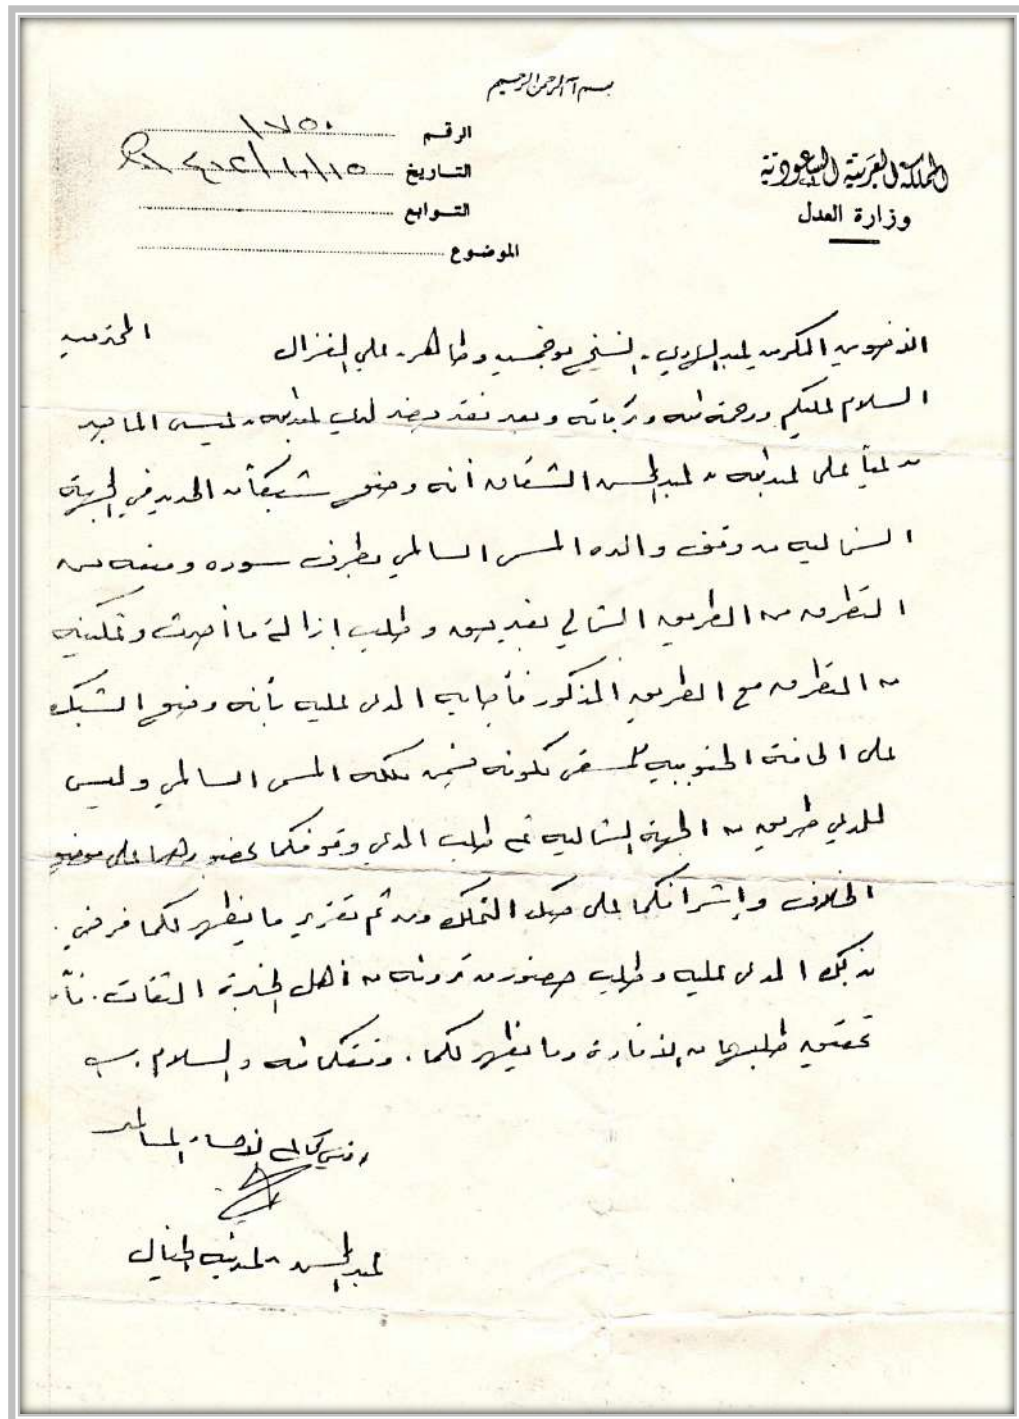 بسم الله الرحمن الرحيم
المملكة العربية السعودية
وزارة العدل
الرقم ١٧٥٠
التاريخ ١٥/١٠/١٤١٢
التوابع
الموضوع
الأخوين المكرمين عبد الهادي الشيخ بوخمسين وطاهر علي الغزال المحترمين
السلام عليكم ورحمة الله وبركاته وبعد فقد حضر لدي عبدالله عيسى الماجد
مدعياً على عبدالله عبدالمحسن الشقاق أنه وضع شبكاً من الحديد في الجهة
الشمالية من وقف والده المسمى السالمي بطرف سوره ومنعه من
التطرق من الطريق الشمالي بغير حق وطلب إزالة ما أحدث وتمكينه
من التطرق مع الطريق المذكور فأجابه المدعى عليه بأنه وضع الشبك
على الحافة الجنوبية كونه ضمن ملكه المسمى السالمي وليس
للمدعي طريق من الجهة الشمالية ثم طلب المدعي وقوفكما بحضورهما على موضع
الخلاف وإشرافكما على صك التملك ومن ثم تقرير ما يظهر لكما فرضي
بذلك المدعى عليه وطلب حضور من ترونه من أهل الخبرة الثقات
تحقيق طلبهما الإفادة وما يظهر لكما. وفقكما الله والسلام
قاضي محكمة الأحساء
عبدالمحسن الخيال